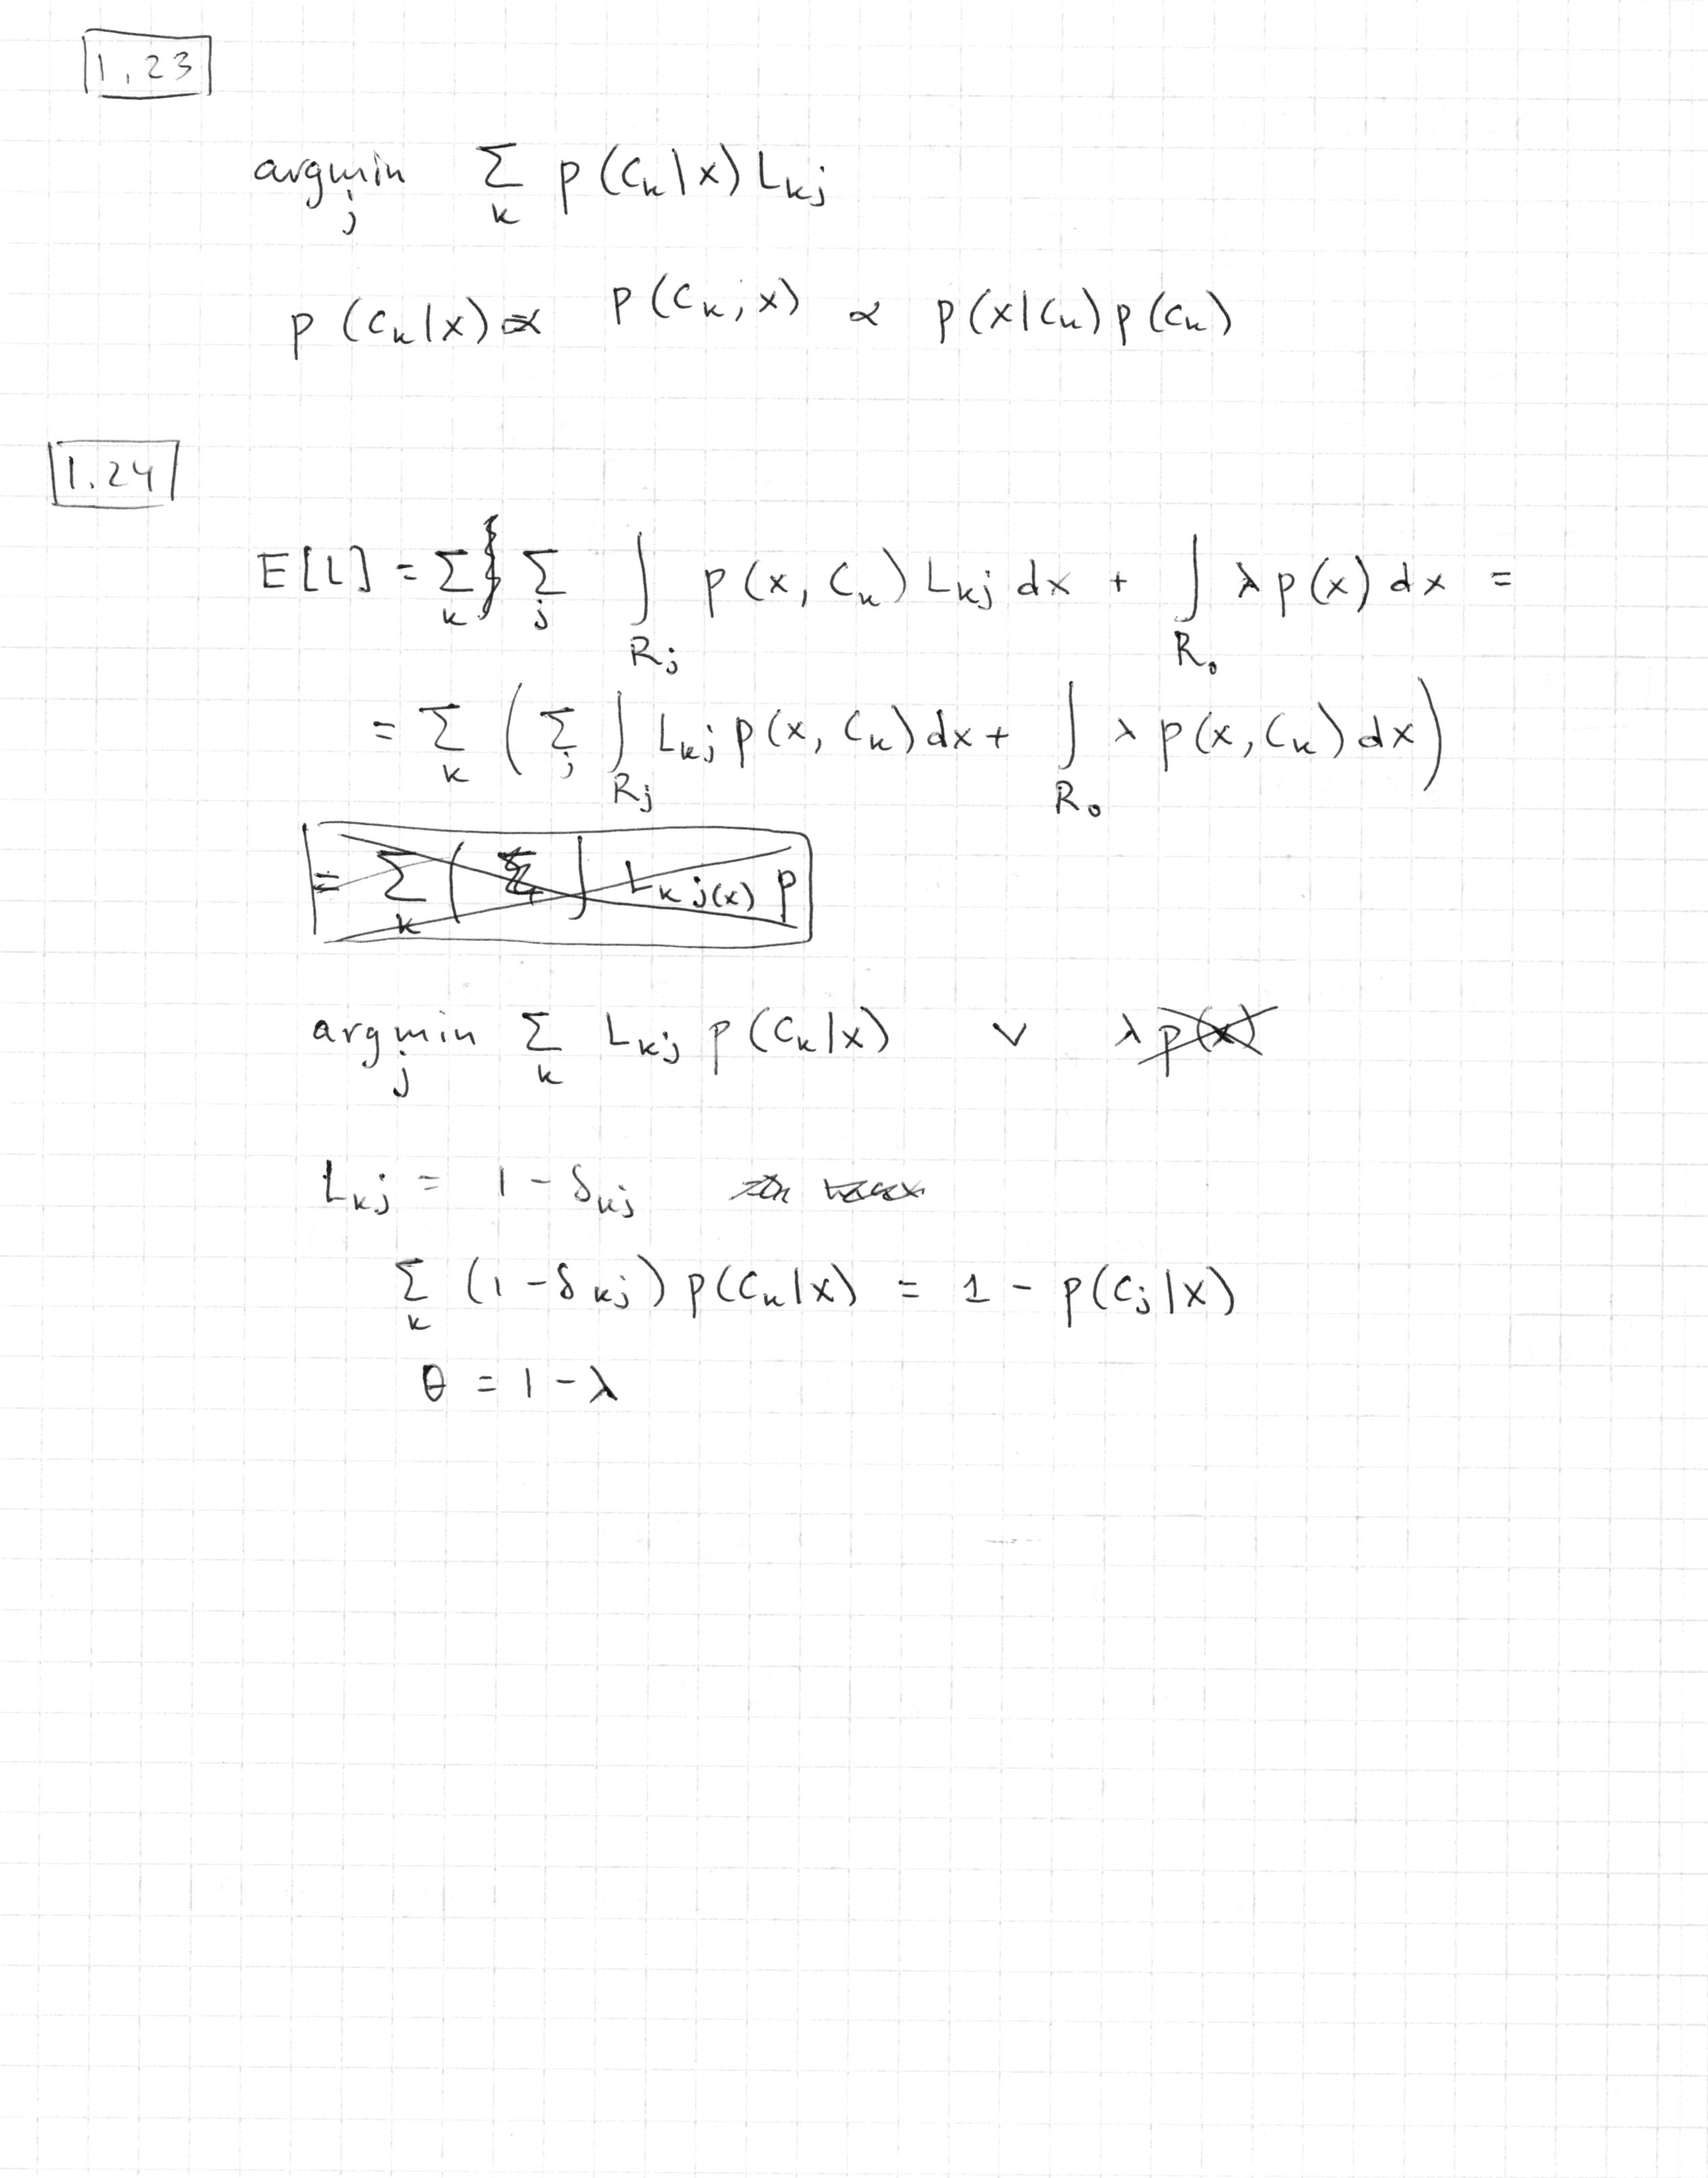 1.23
argmin_j Σ_k p(C_k|x) L_kj
p(C_k|x) ∝ p(C_k, x) ∝ p(x|C_k) p(C_k)
1.24
E[L] = Σ_k Σ_j ∫_{R_j} p(x, C_k) L_kj dx + ∫_{R_0} λ p(x) dx =
= Σ_k ( Σ_j ∫_{R_j} L_kj p(x, C_k) dx + ∫_{R_0} λ p(x, C_k) dx )
= Σ_k ( Σ ∫ L_{k j(x)} p
argmin_j Σ_k L_kj p(C_k|x) ∨ λ p(x)
L_kj = 1 - δ_kj
Σ_k (1 - δ_kj) p(C_k|x) = 1 - p(C_j|x)
θ = 1 - λ